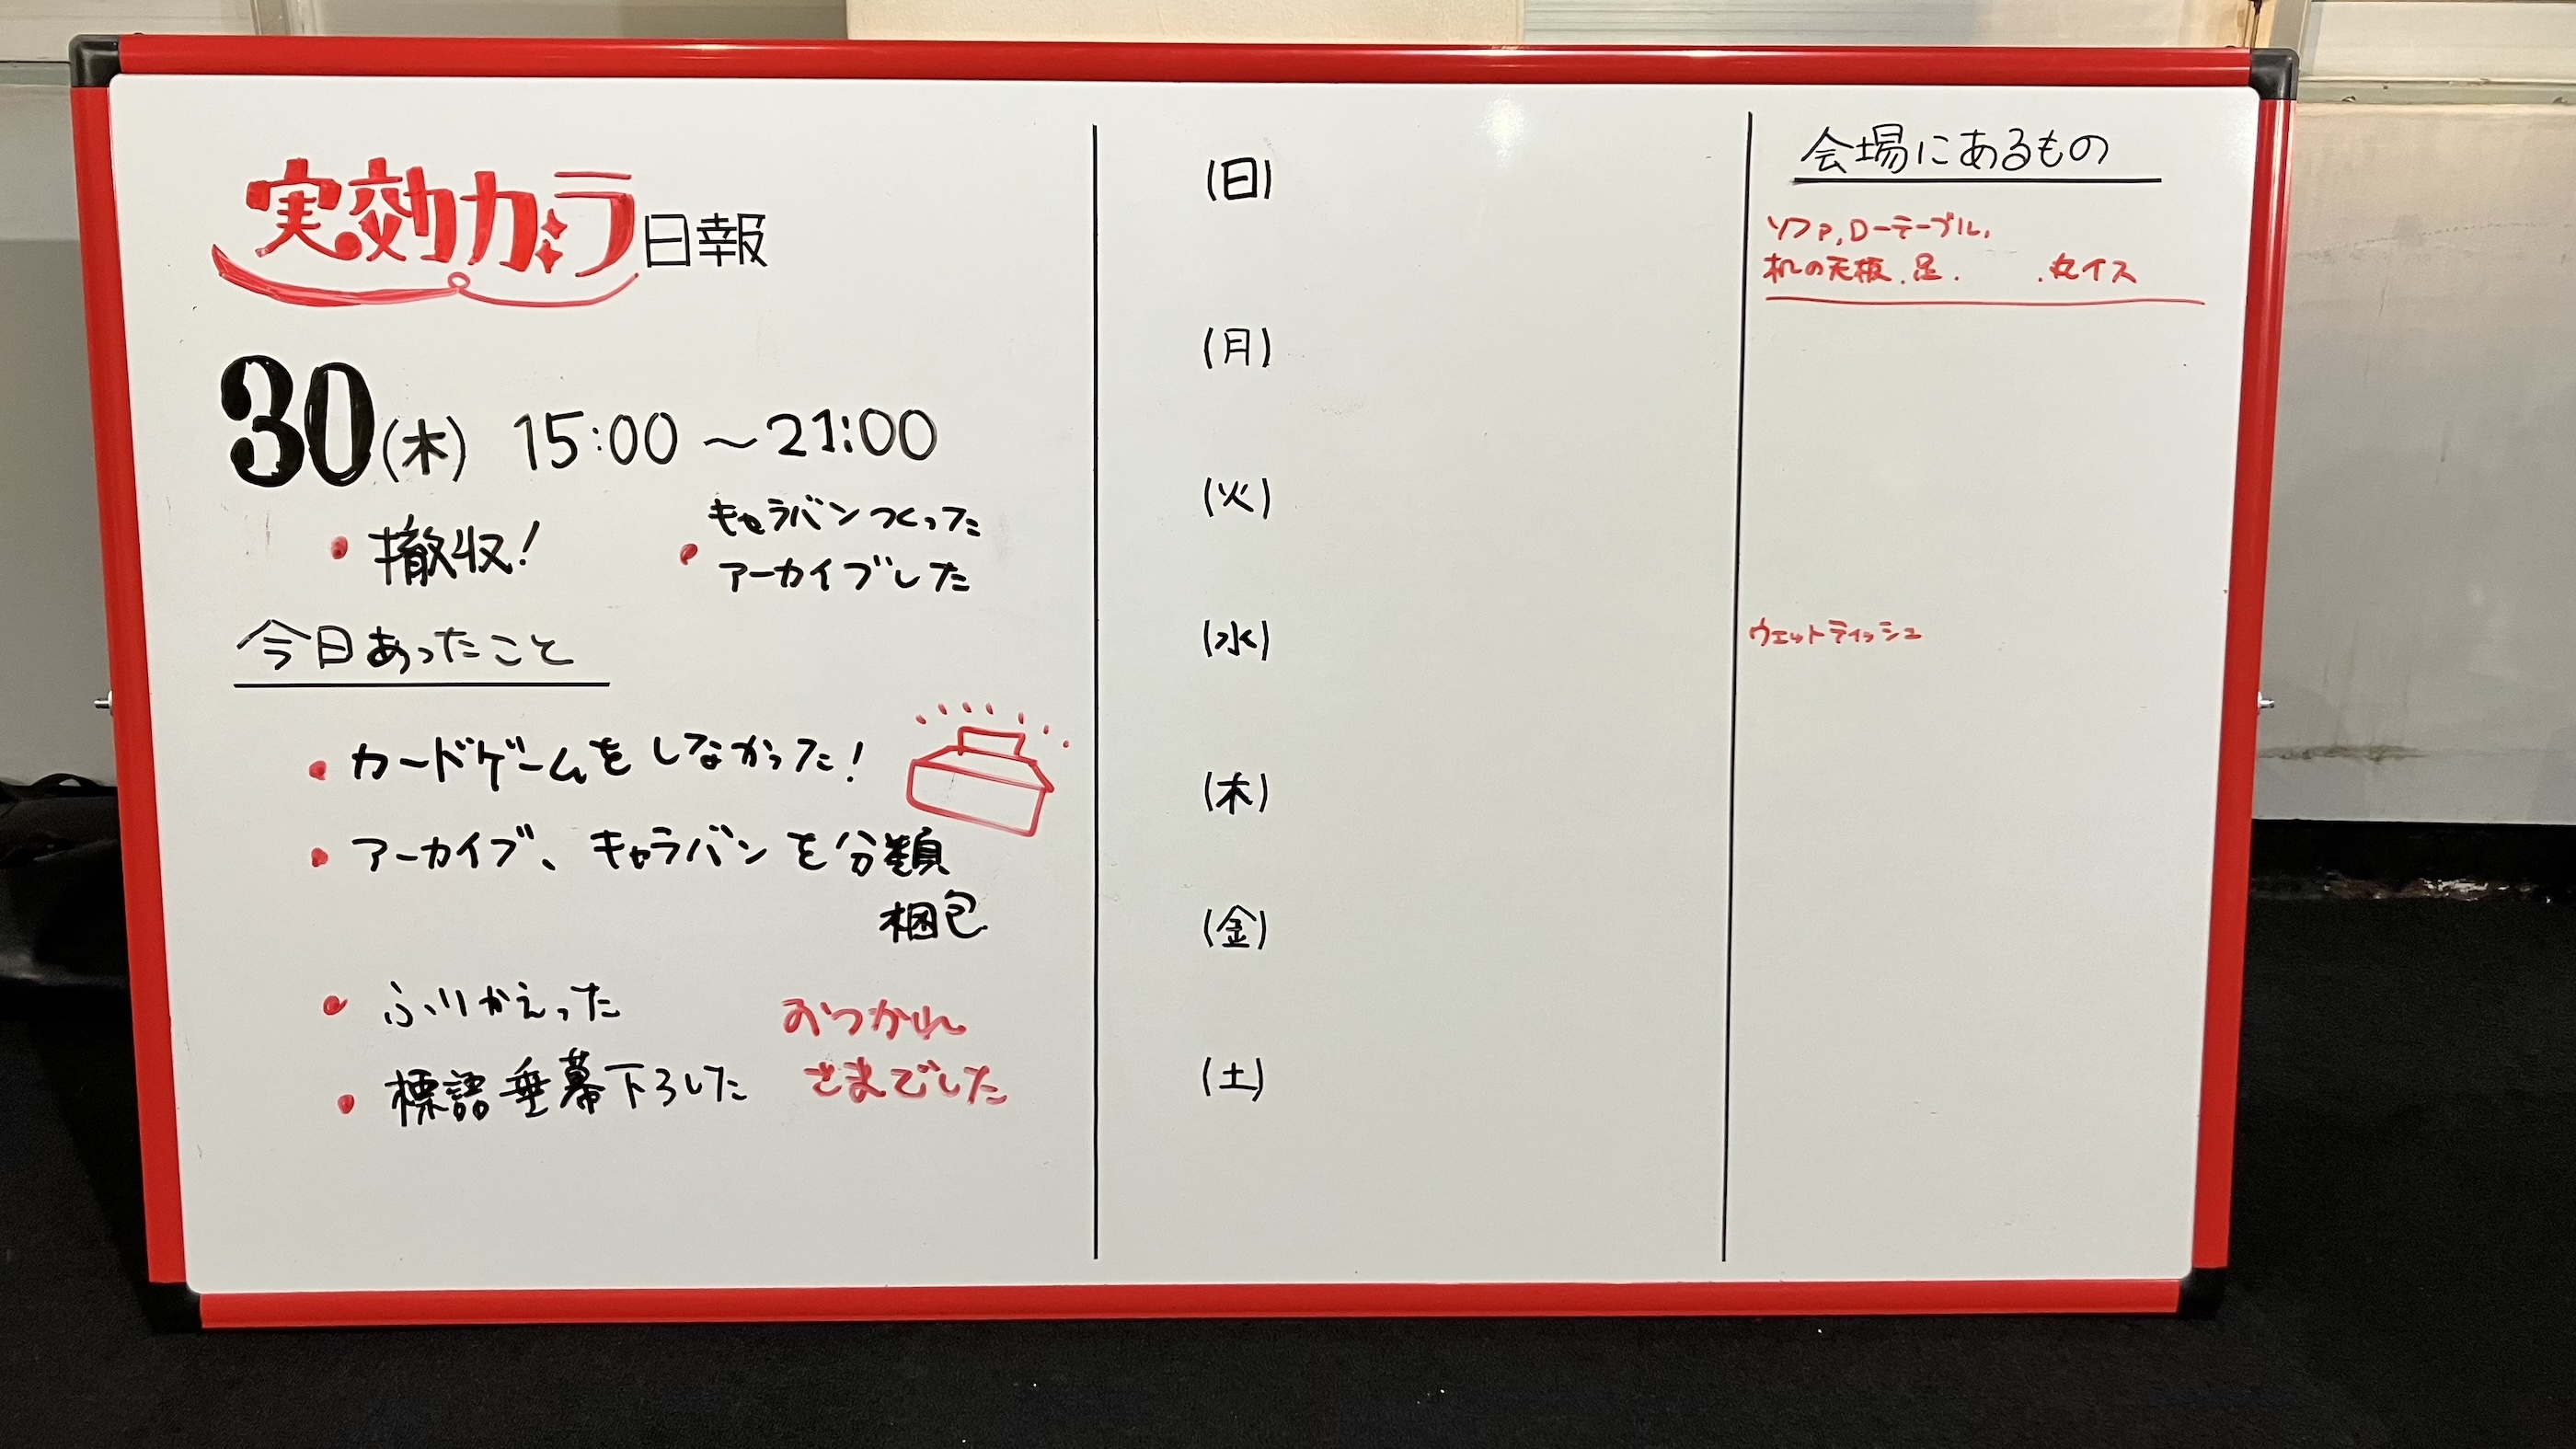 実効カメラ日報
30(木) 15:00 〜21:00
• 撤収!
• キャラバンつくった
アーカイブした
今日あったこと
• カードゲームをしなかった!
• アーカイブ、キャラバンを分類
梱包
• ふりかえった
• 標語垂幕下ろした
おつかれ
さまでした
(日)
(月)
(火)
(水)
(木)
(金)
(土)
会場にあるもの
ソファ,ローテーブル,
机の天板.足. .丸イス
ウェットティッシュ